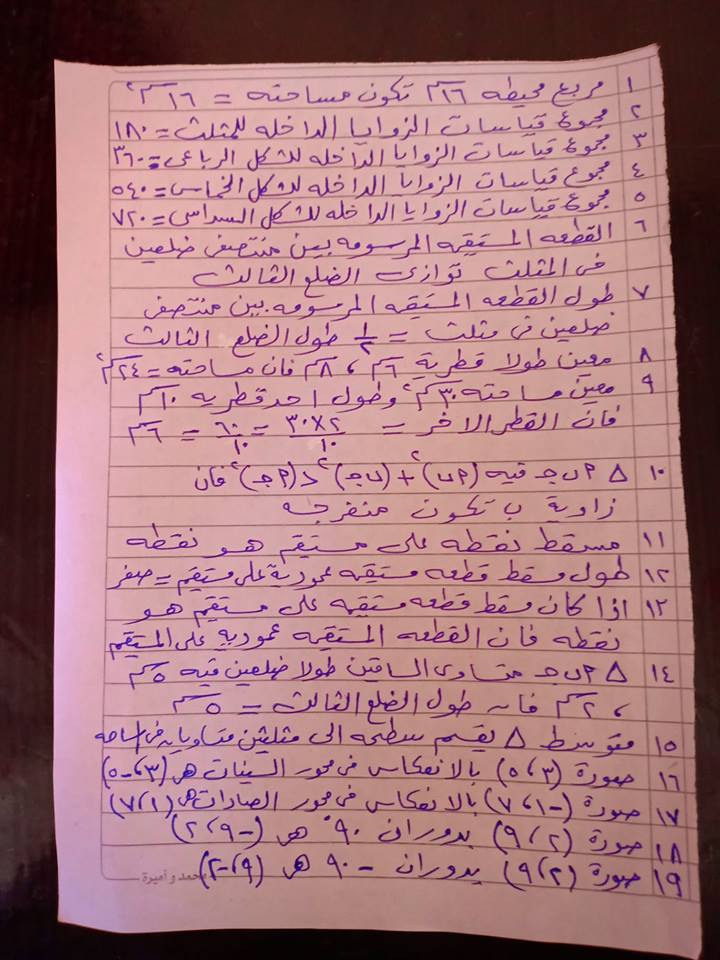 ١ مربع محيطه ١٦سم تكون مساحته = ١٦سم٢
٢ مجموع قياسات الزوايا الداخله للمثلث = ١٨٠
٣ مجموع قياسات الزوايا الداخله للشكل الرباعى = ٣٦٠
٤ مجموع قياسات الزوايا الداخله للشكل الخماسى = ٥٤٠
٥ مجموع قياسات الزوايا الداخله للشكل السداسى = ٧٢٠
٦ القطعه المستقيمه المرسومه بين منتصفى ضلعين
فى المثلث توازى الضلع الثالث
٧ طول القطعه المستقيمه المرسومه بين منتصفى
ضلعين فى مثلث = ١/٢ طول الضلع الثالث
٨ معين طولا قطرية ٦سم ، ٨سم فان مساحته = ٢٤سم٢
٩ معين مساحته ٣٠سم٢ وطول احد قطريه ١٠سم
فان القطر الاخر = ٣٠×٢/١٠ = ٦٠/١٠ = ٦سم
١٠ △ ٢ب جـ فيه (٢ب)٢ + (ب جـ)٢ < (٢جـ)٢ فان
زاوية ب تكون منفرجه
١١ مسقط نقطه على مستقيم هو نقطه
١٢ طول مسقط قطعه مستقيمه عمودية على مستقيم = صفر
١٣ اذا كان مسقط قطعه مستقيمه على مستقيم هو
نقطه فان القطعه المستقيمه عموديه على المستقيم
١٤ △ ٢ب جـ متساوى الساقين طولا ضلعين فيه ٥سم
، ٢سم فان طول الضلع الثالث = ٥سم
١٥ متوسط △ يقسم سطحه الى مثلثين متساويان فى المساحه
١٦ صورة (٣،٥) بالانعكاس فى محور السينات هى (٣،-٥)
١٧ صورة (-١،٧) بالانعكاس فى محور الصادات هى (١،٧)
١٨ صورة (٢،٩) بدوران ٩٠° هى (-٩،٢)
١٩ صورة (٢،٩) بدوران -٩٠ هى (٩،-٢)
محمد و أميرة